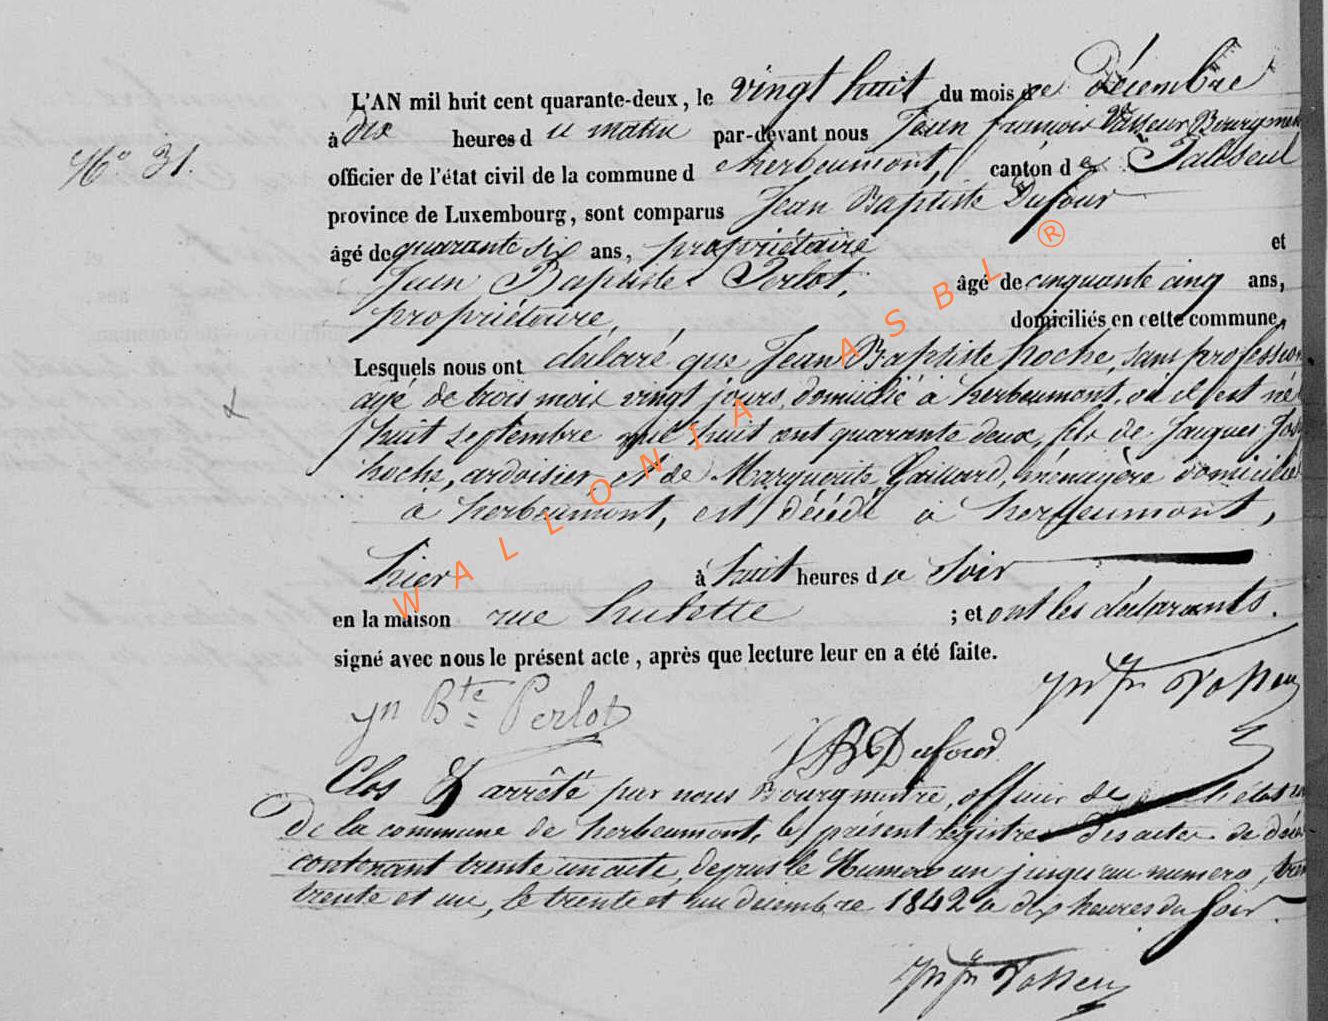 N° 31.
L'AN mil huit cent quarante-deux, le vingt huit du mois de Décembre
à dix heures du matin par-devant nous Jean françois Bourgme
officier de l'état civil de la commune d herbeumont, canton de Paliseul
province de Luxembourg, sont comparus Jean Baptiste Dufour
âgé de quarante six ans, propriétaire et
Jean Baptiste Perlot, âgé de cinquante cinq ans,
propriétaire, domiciliés en cette commune,
Lesquels nous ont déclaré que Jean Baptiste hoche, sans profession
agé de trois mois vingt jours, domicilié à herbeumont, où il est né
huit septembre mil huit cent quarante deux, fils de Jacques
hoche, ardoisier et de Marguerite Gaillard, ménagère domiciliés
à herbeumont, est décédé à herbeumont,
hier à huit heures du soir
en la maison rue hulette ; et ont les déclarants.
signé avec nous le présent acte, après que lecture leur en a été faite.
Jn Bte Perlot
JB Dufour
Clos et arrêté par nous Bourgmestre, officier de l'état
De la commune de herbeumont, le présent régistre des actes de
contenant trente un acte, depuis le Numero un jusqu'au numero
trente et un, le trente et un décembre 1842 à dix heures du soir.
WALLONIA ASBL ®